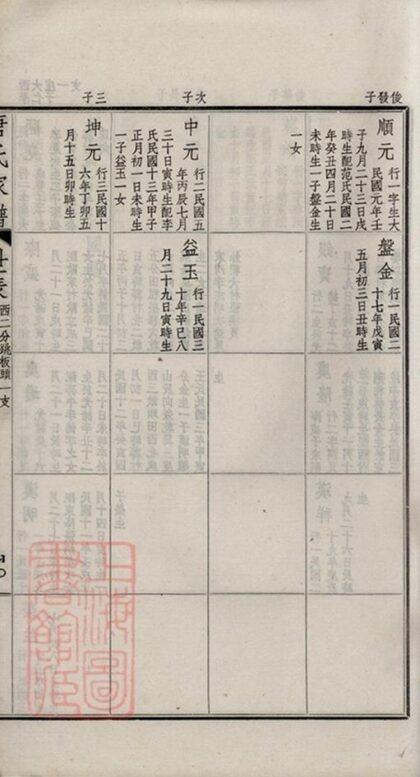 俊發子
順元
行一字生大
民國元年壬
子九月二十三日戌
時生配范氏民國二
年癸丑四月二十日
未時生一子盤金生
一女
盤金
行一民國二
十七年戊寅
五月初三日丑時生
次子
中元
行二民國五
年丙辰七月
三十日寅時生配李
氏民國十三年甲子
正月初一日未時生
一子益玉一女
益玉
行一民國三
十年辛巳八
月二十九日寅時生
三子
坤元
行三民國十
六年丁卯五
月十五日卯時生
氏家譜
世表
西二分銚板頭一支
上海圖
書館藏